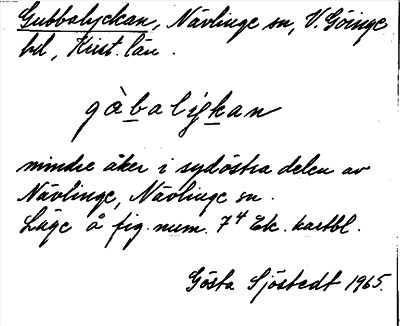 Gubbalyckan, Nävlinge sn, V. Göinge
hd, Krist. län.
gàbaligkan
mindre åker i sydöstra delen av
Nävlinge, Nävlinge sn.
Läge å fig. num. 7⁴ Ek. kartbl.
Gösta Sjöstedt 1965.